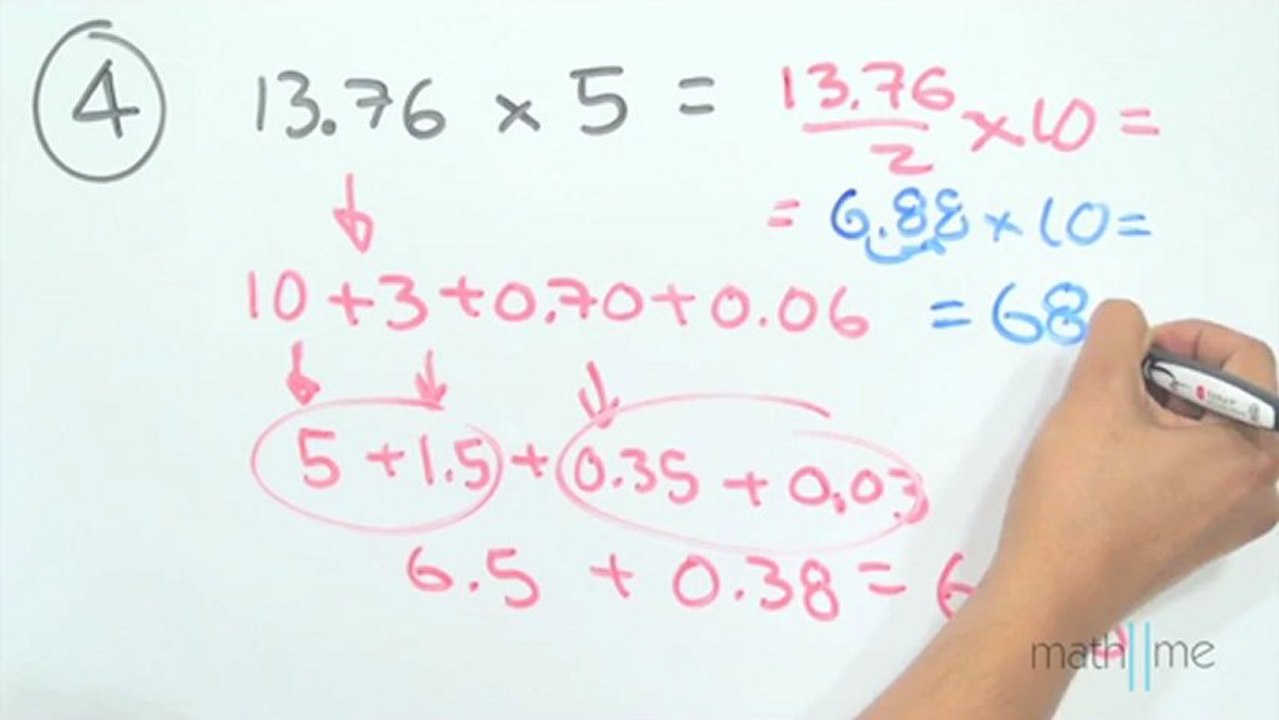 4 13.76 × 5 = 13.76/2 × 10 =
= 6.88 × 10 =
10 + 3 + 0.70 + 0.06 = 68
5 + 1.5 + 0.35 + 0.03
6.5 + 0.38 = 6
math||me